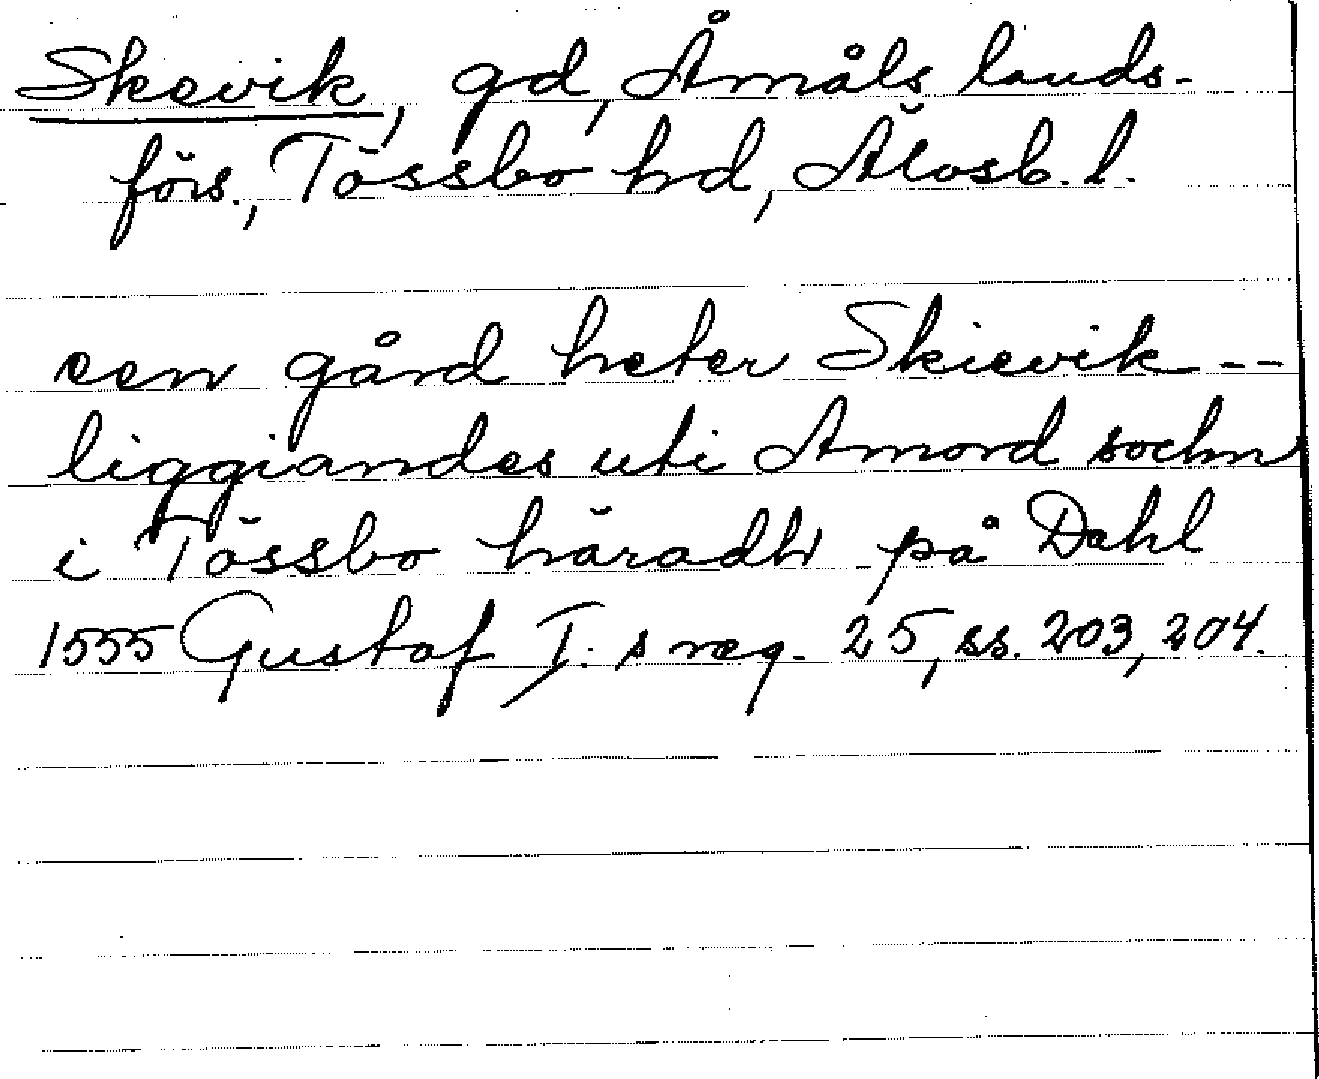 Skevik, gd, Åmåls lands-
förs., Tössbo hd, Älvsb. l.
een gård heter Skievik --
liggiandes uti Amord sochn
i Tössbo häradh på Dahl
1555 Gustaf I:s reg. 25, ss. 203, 204.